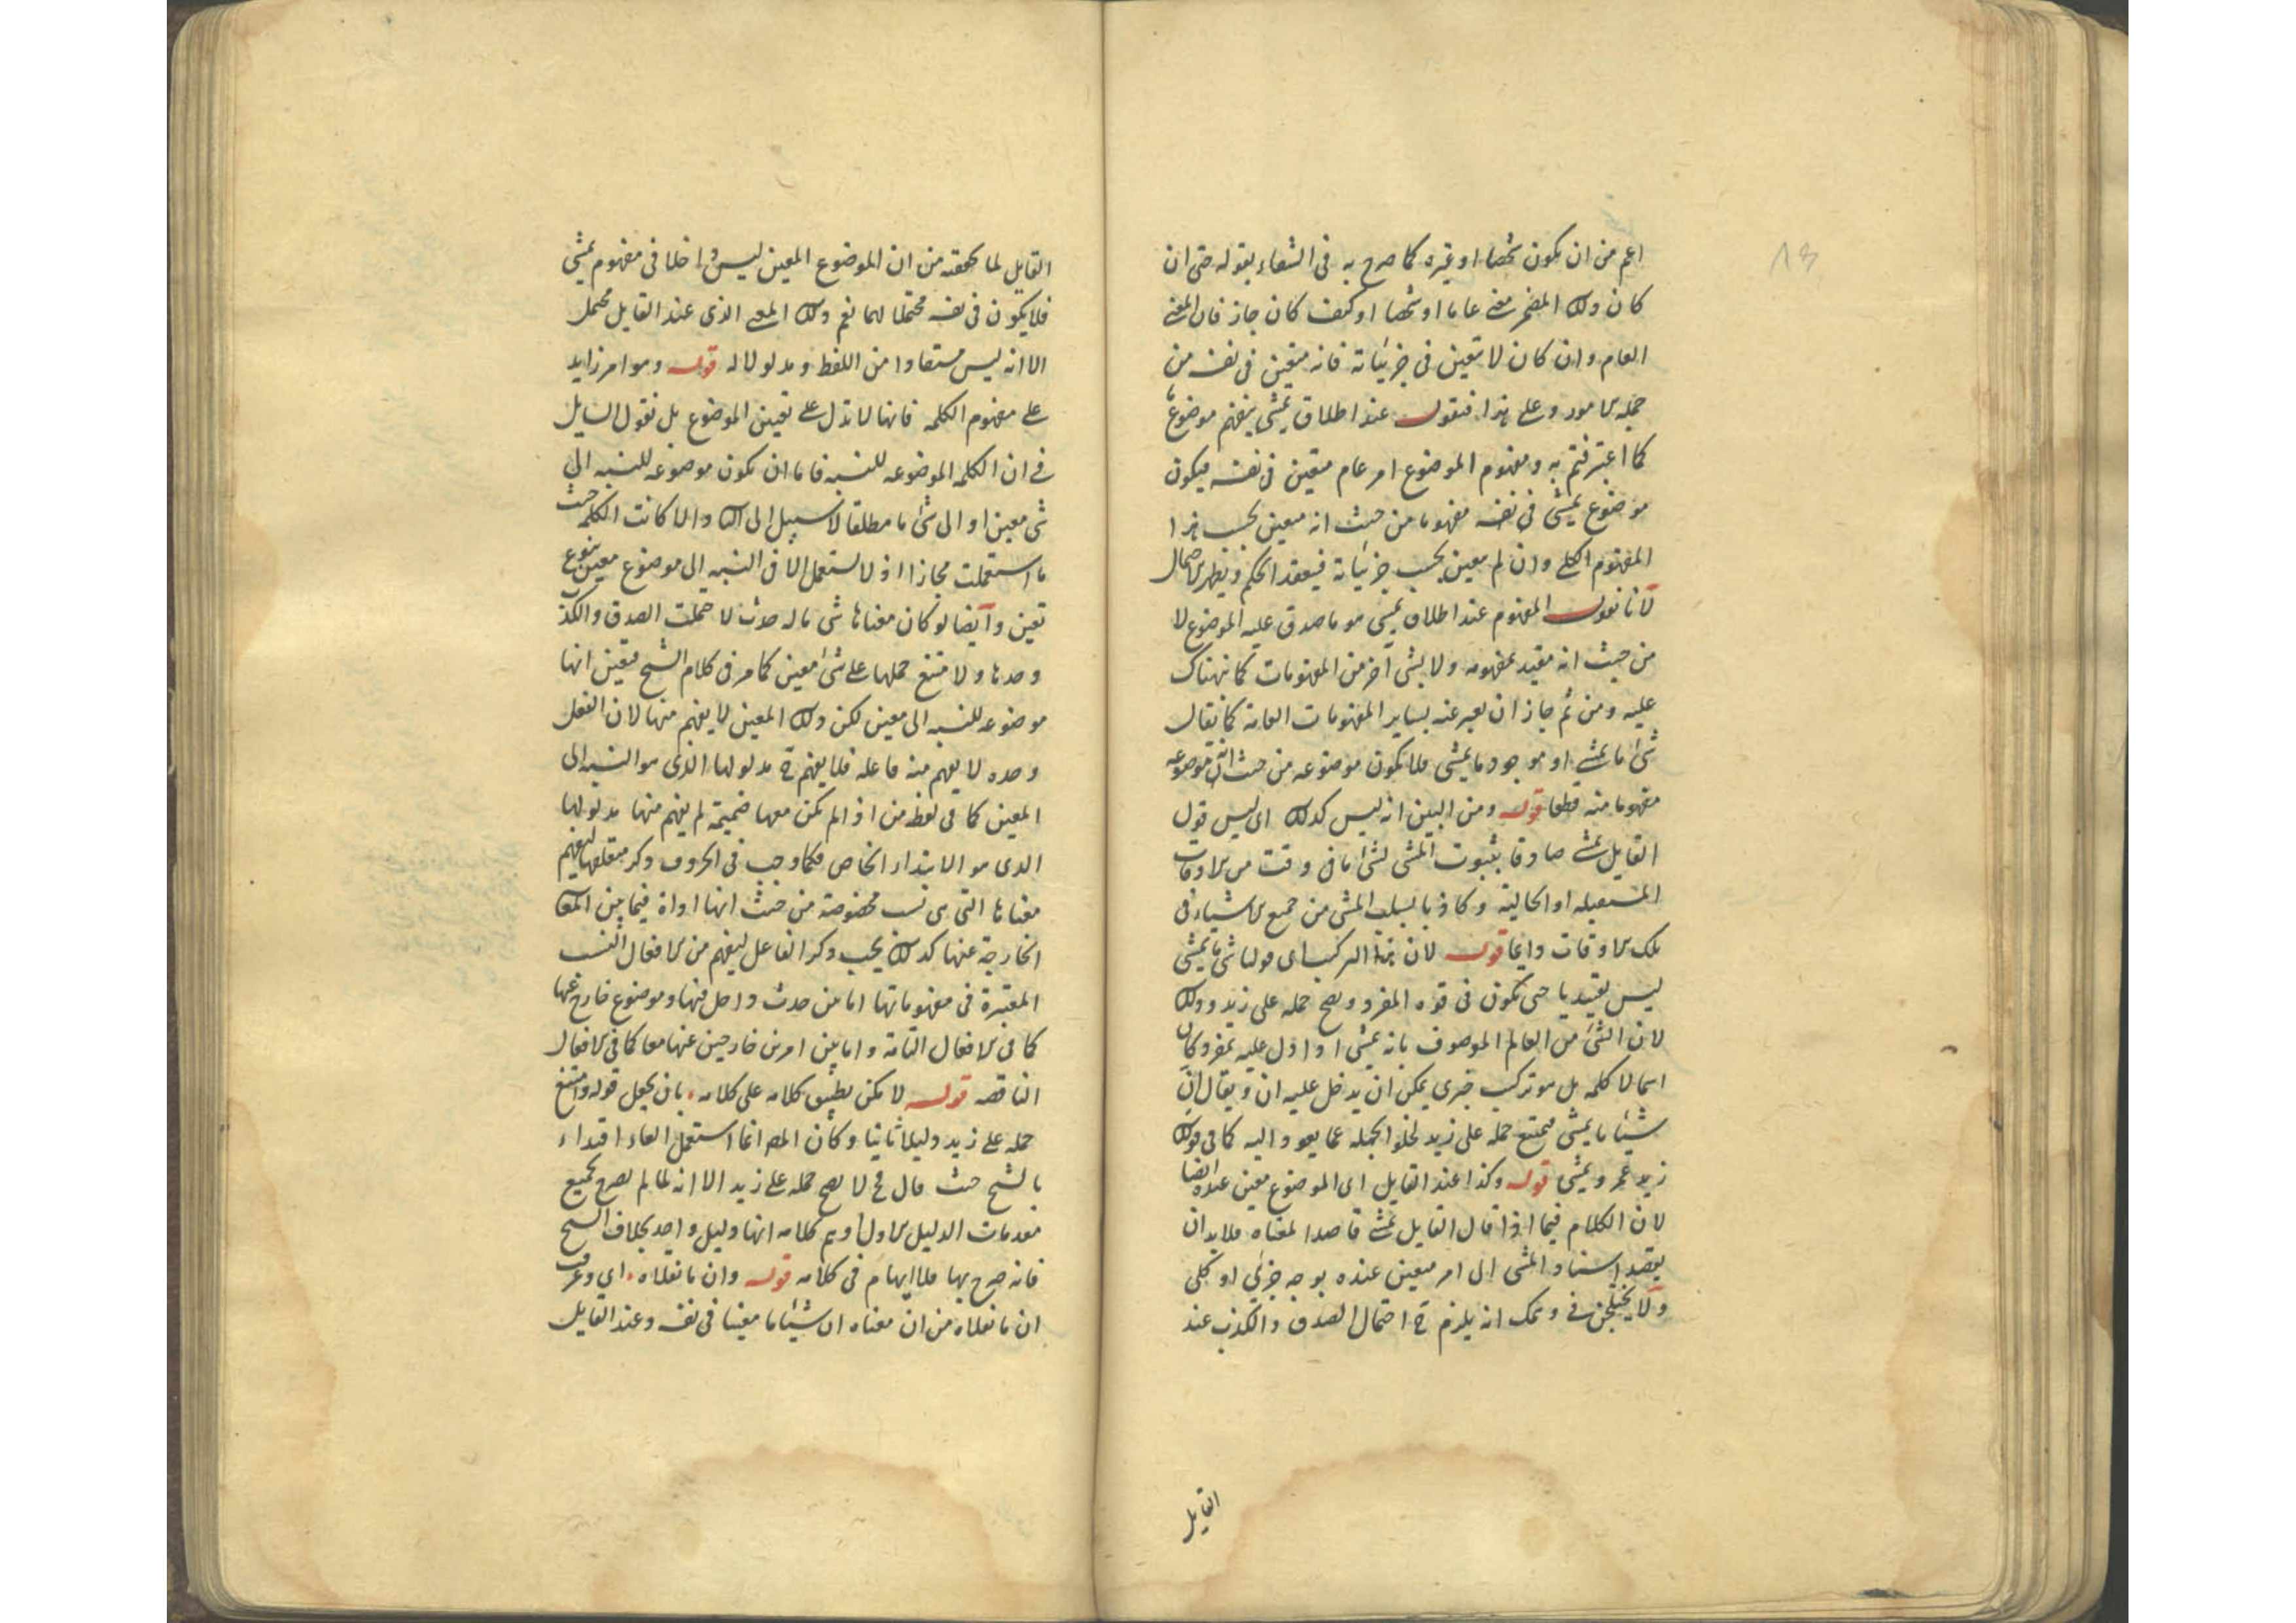 ١٣
اعم من ان يكون شخصا او غيره كما صرح به فى الشفاء بقوله حتى ان
كان ذلك المضمر معنى عاما او شخصا او كيف كان جاز فان المعنى
العام وان كان لا تعين فى جزئياته فانه متعين فى نفسه من
جمله الامور وعلى هذا فنقول عند اطلاق يمشى يتفهم موضوع
كما اعترفتم به ومفهوم الموضوع امر عام متعين فى نفسه فيكون
موضوع يمشى فى نفسه مفهوما من حيث انه معين بحسب هذا
المفهوم الكلى وان لم معين بحسب جزئياته فينعقد الحكم ويظهر الاحتمال
لانا نقول المفهوم عند اطلاق يمشى هو ما صدق عليه الموضوع لا
من حيث انه مقيد بمفهومه ولا بشى آخر من المفهومات كما نبهناك
عليه ومن ثم جاز ان يعبر عنه بساير المفهومات العامة كما يقال
شئ ما يمشى او موجود ما يمشى فلا يكون موضوعه من حيث انه موضوعه
مفهوما منه قطعا قوله ومن البين انه ليس كذلك اى ليس قول
القايل يمشى صادقا بثبوت المشى لشئ ما فى وقت من الاوقات
المستقبله او الحالية وكاذبا بسلب المشى من جميع الاشياء فى
تلك الاوقات دايما قوله لان هذا التركيب اى قولنا شئ ما يمشى
ليس تقييديا حتى يكون فى قوه المفرد ويصح حمله على زيد وذلك
لان الشئ من العالم الموصوف بانه يمشى اذا دل عليه بمفرد كان
اسما لا كلمه بل هو تركيب خبرى يمكن ان يدخل عليه ان ويقال ان
شيئا ما يمشى فيمتنع حمله على زيد لخلو الجمله عما يعود اليه كما فى قولك
زيد عمرو يمشى قوله وكذا عند القايل اى الموضوع معين عنده ايضا
لان الكلام فيما اذا قال القايل يمشى قاصدا لمعناه فلا بد ان
يقصد اسناد المشى الى امر معين عنده بوجه جزئى او كلى
ولا يختلجن فى وهمك انه يلزم ح احتمال الصدق والكذب عند
القايل
القايل لما تحققته من ان الموضوع المعين ليس داخلا فى مفهوم يمشى
فلا يكون فى نفسه محتملا لهما نعم ذلك المعنى الذى عند القايل محتمل
الا انه ليس مستفادا من اللفظ ومدلولا له قوله وهو امر زايد
على مفهوم الكلمه فانها لا تدل على تعين الموضوع بل نقول السايل
فى ان الكلمه الموضوعه للنسبه فاما ان يكون موضوعه للنسبه الى
شى معين او الى شئ ما مطلقا لا سبيل الى الثا والا كانت الكلمه حيث
ما استعملت مجازا اذ لا تستعمل الا فى النسبه الى موضوع معين بنوع
تعين وايضا لو كان معناها شى ما له حدث لا حتملت الصدق والكذب
وحدها ولا متنع حملها على شئ معين كما مر فى كلام الشيخ فتعين انها
موضوعه للنسبه الى معين لكن ذلك المعين لا يفهم منها لان الفعل
وحده لا يفهم منه فاعله فلا يفهم ح مدلولها الذى هو النسبه الى
المعين كما فى لفظ من اذ الم تكن معها ضميمة لم يفهم منها مدلولها
الذى هو الابتداء الخاص فكما وجب فى الحروف ذكر متعلقها ليفهم
معناها التى هى نسب مخصوصة من حيث انها اداة فيما بين المعا
الخارجة عنها كذلك يجب ذكر الفاعل ليفهم من الافعال النسب
المعتبرة فى مفهوماتها اما من حدث داخل فيها وموضوع خارج عنها
كما فى الافعال التامة واما بين امرين خارجين عنها معا كما فى الافعال
الناقصه قوله لا يمكن تطبيق كلامه على كلامه بان يجعل قوله وامتنع
حمله على زيد دليلا ثانيا وكان المص انما استعمل الفاء اقتداء
بالشيخ حيث قال فح لا يصح حمله على زيد الا انه لما لم يصرح بجميع
مقدمات الدليل الاول اوهم كلامه انها دليل واحد بخلاف الشيخ
فانه صرح بها فلا ايهام فى كلامه قوله وان ما نقلاه اى وعرف
ان ما نقلاه من ان معناه ان شيئا ما معينا فى نفسه وعند القايل